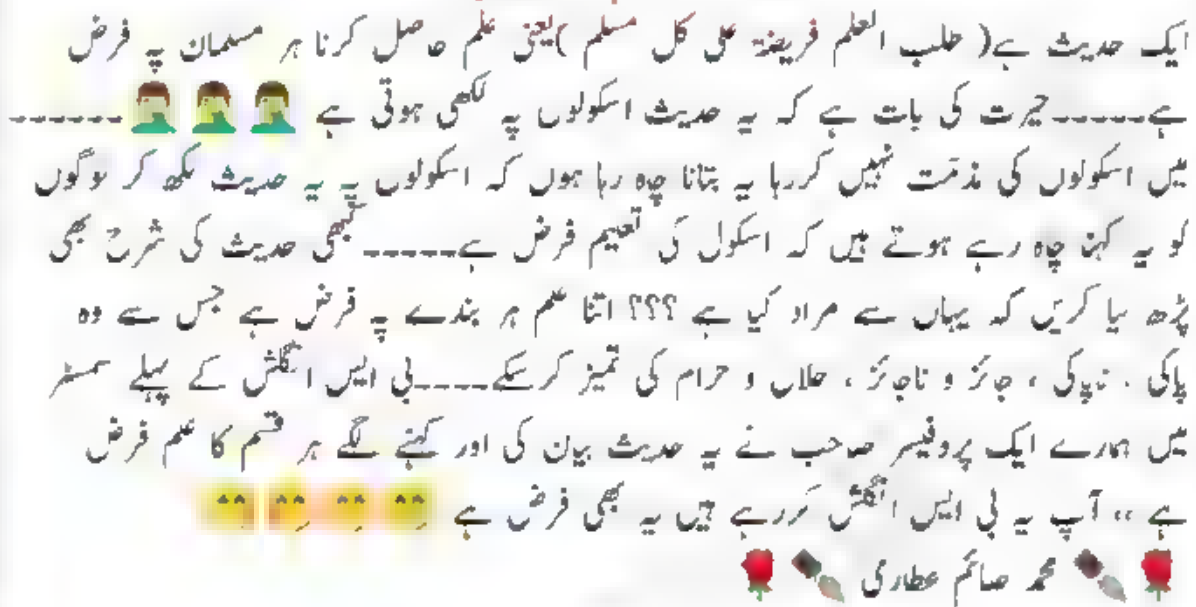 ایک حدیث ہے( طلب العلم فریضۃ علی کل مسلم )یعنی علم حاصل کرنا ہر مسلمان پہ فرض
ہے-----حیرت کی بات ہے کہ یہ حدیث اسکولوں پہ لکھی ہوتی ہے 🤦 🤦 🤦 ------
میں اسکولوں کی مذمّت نہیں کررہا یہ بتانا چاہ رہا ہوں کہ اسکولوں پہ یہ حدیث لکھ کر لوگوں
کو یہ کہنا چاہ رہے ہوتے ہیں کہ اسکول کی تعلیم فرض ہے-----کبھی حدیث کی شرح بھی
پڑھ لیا کریں کہ یہاں سے مراد کیا ہے ؟؟؟ اتنا علم ہر بندے پہ فرض ہے جس سے وہ
پاکی ، ناپاکی ، جائز و ناجائز ، حلال و حرام کی تمیز کرسکے----بی ایس انگلش کے پہلے سمسٹر
میں ہمارے ایک پروفیسر صاحب نے یہ حدیث بیان کی اور کہنے لگے ہر قسم کا علم فرض
ہے ،، آپ یہ بی ایس انگلش کررہے ہیں یہ بھی فرض ہے 🤭 🤭 🤭 🤭
🌹 ✒ محمد صائم عطاری ✒ 🌹